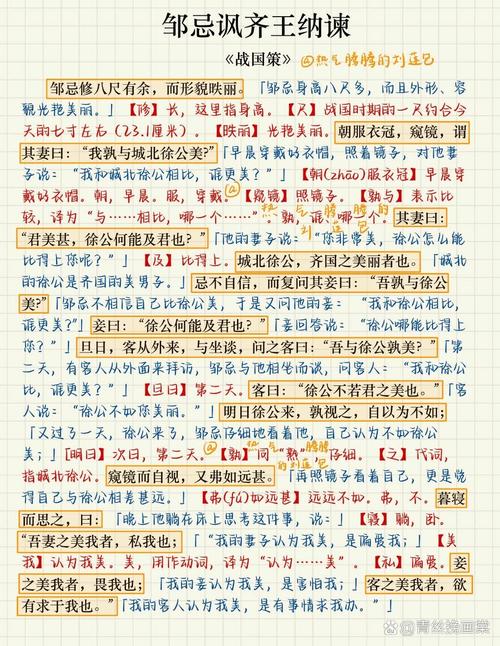 邹忌讽齐王纳谏
《战国策》 @热气腾腾的刘莲包
邹忌修八尺有余，而形貌昳丽。「邹忌身高八尺多，而且外形、容
貌光艳美丽。」【修】长，这里指身高。【尺】战国时期的一尺约合今
天的七寸左右（23.1厘米）。【昳丽】光艳美丽。朝服衣冠，窥镜，谓
其妻曰：“我孰与城北徐公美?”「早晨穿戴好衣帽，照着镜子，对他妻
子说：“我和城北徐公相比，谁更美？”」【朝(zhāo)服衣冠】早晨穿
戴好衣帽。朝，早晨。服，穿戴。【窥镜】照镜子。【孰与】表示比
较，译为“与……相比，哪一个……”。孰，谁、哪一个。其妻曰：
@热气腾腾的刘莲包
“君美甚，徐公何能及君也？”「他的妻子说：“你非常美，徐公怎么能
比得上你呢？”」【及】比得上。城北徐公，齐国之美丽者也。「城北
的徐公是齐国的美男子。」忌不自信，而复问其妾曰：“吾孰与徐公
美?”「邹忌不相信自己比徐公美，于是又问他的妾：“我和徐公相比，
谁更美？”」妾曰：“徐公何能及君也？”「妾回答说：“徐公哪能比得上
你？”」旦日，客从外来，与坐谈，问之客曰：“吾与徐公孰美？”「第
二天，有客人从外面来拜访，邹忌与他相坐而谈，问客人：“我和徐公
比，谁更美？”」【旦日】第二天。客曰：“徐公不若君之美也。”「客
人说：“徐公不如你美丽。”」明日徐公来，孰视之，自以为不如；
「又过了一天，徐公来了，邹忌仔细地看着他，自己认为不如徐公
美；」[明日】次日，第二天。【孰】同“熟”，仔细。【之】代词，
@热气腾腾的刘莲包
指城北徐公。窥镜而自视，又弗如远甚。「再照镜子看着自己，更是觉
得自己与徐公相差甚远。」【弗(fú)如远甚】远远不如。弗，不。暮寝
而思之，曰：「晚上他躺在床上思考这件事，说：」【寝】躺，卧。
“吾妻之美我者，私我也；「“我的妻子认为我美，是偏爱我；」【美
我】认为我美。美，用作动词，译为“认为……美”。【私】偏爱。妾
之美我者，畏我也；「我的妾认为我美，是害怕我；」客之美我者，欲
有求于我也。”「我的客人认为我美，是有事情求我办。”」
青丝挽画棠